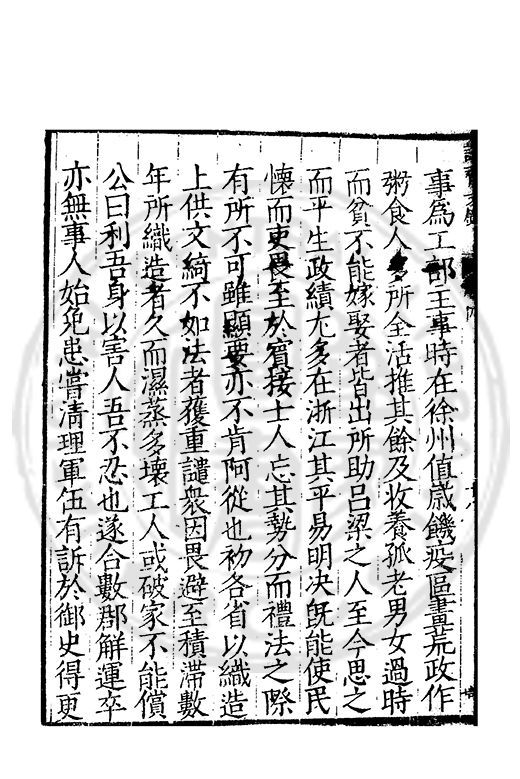 事為工部主事時在徐州值歲饑疫區畫荒政作
粥食人多所全活推其餘及收養孤老男女過時
而貧不能嫁娶者皆出所助呂梁之人至今思之
而平生政績尤多在浙江其平易明决旣能使民
懷而吏畏至於賓接士人忘其勢分而禮法之際
有所不可雖顯要亦不肯阿從也初各省以織造
上供文綺不如法者獲重譴衆因畏避至積滯數
年所織造者久而濕蒸多壞工人或破家不能償
公曰利吾身以害人吾不忍也遂合數郡解運卒
亦無事人始免患嘗清理軍伍有訴於御史得更